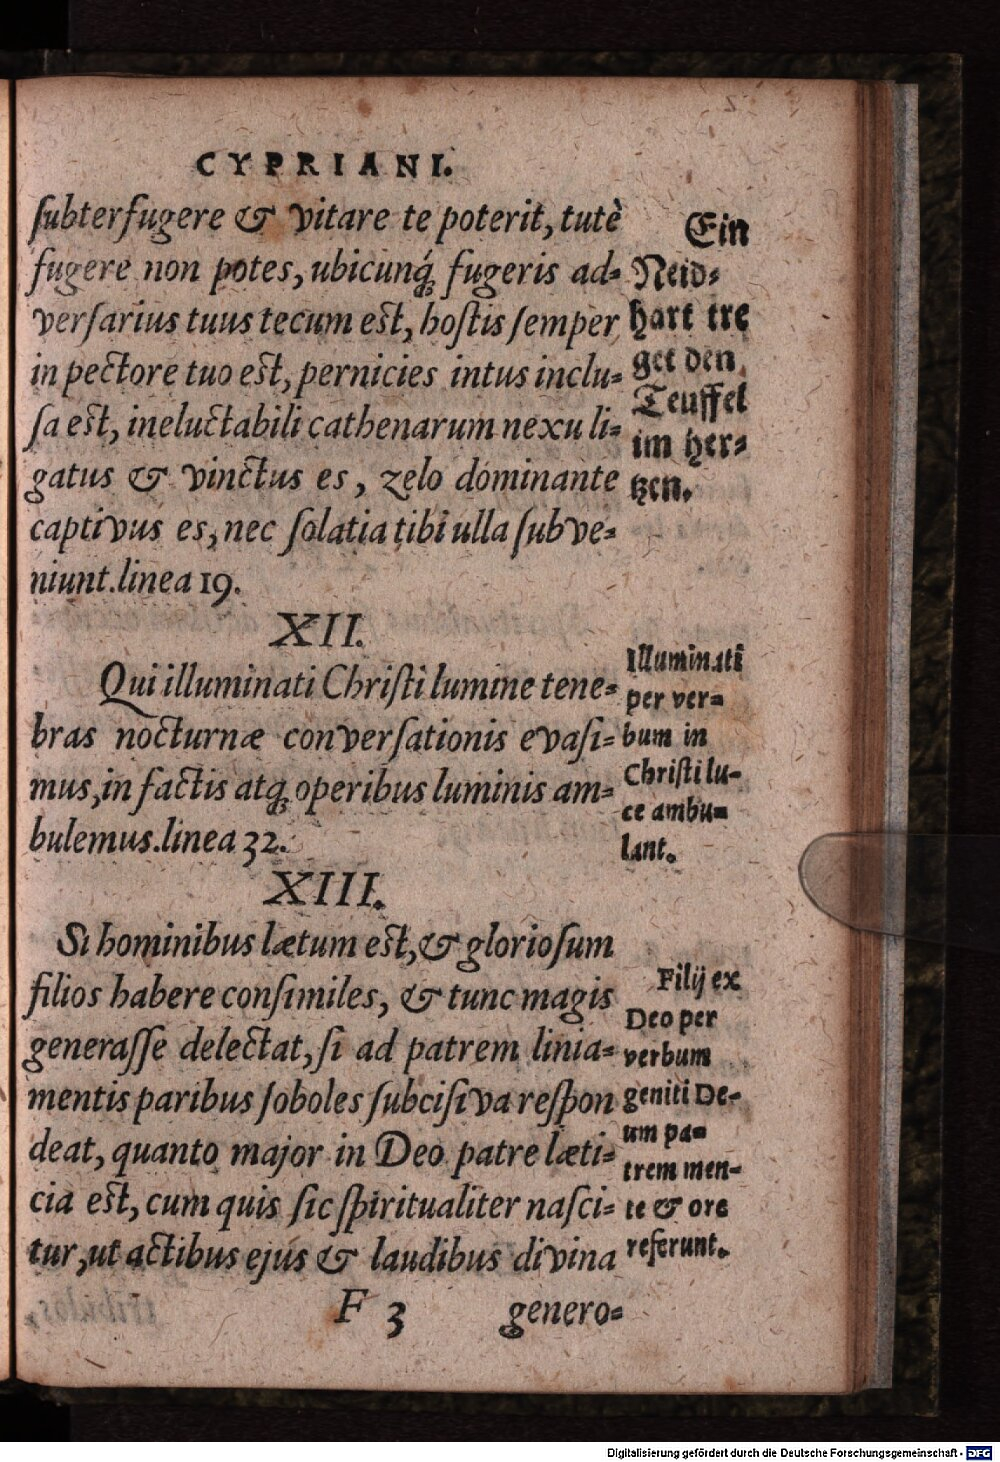 CYPRIANI.
subterfugere & vitare te poterit, tutè
fugere non potes, ubicunq́; fugeris ad-
versarius tuus tecum est, hostis semper
in pectore tuo est, pernicies intus inclu-
sa est, ineluctabili cathenarum nexu li-
gatus & vinctus es, zelo dominante
captivus es, nec solatia tibi ulla subve-
niunt. linea 19.
Ein
Neid-
hart tre
get den
Teuffel
im her-
tzen.
XII.
Qui illuminati Christi lumine tene-
bras nocturnæ conversationis evasi-
mus, in factis atq; operibus luminis am-
bulemus. linea 32.
Illuminati
per ver-
bum in
Christi lu-
ce ambu-
lant.
XIII.
Si hominibus lætum est, & gloriosum
filios habere consimiles, & tunc magis
generasse delectat, si ad patrem linia-
mentis paribus soboles subcisiva respon
deat, quanto major in Deo patre læti-
cia est, cum quis sic spiritualiter nasci-
tur, ut actibus ejus & laudibus divina
Filij ex
Deo per
verbum
geniti De-
um pa-
trem men-
te & ore
referunt.
F 3 genero-
Digitalisierung gefördert durch die Deutsche Forschungsgemeinschaft - DFG